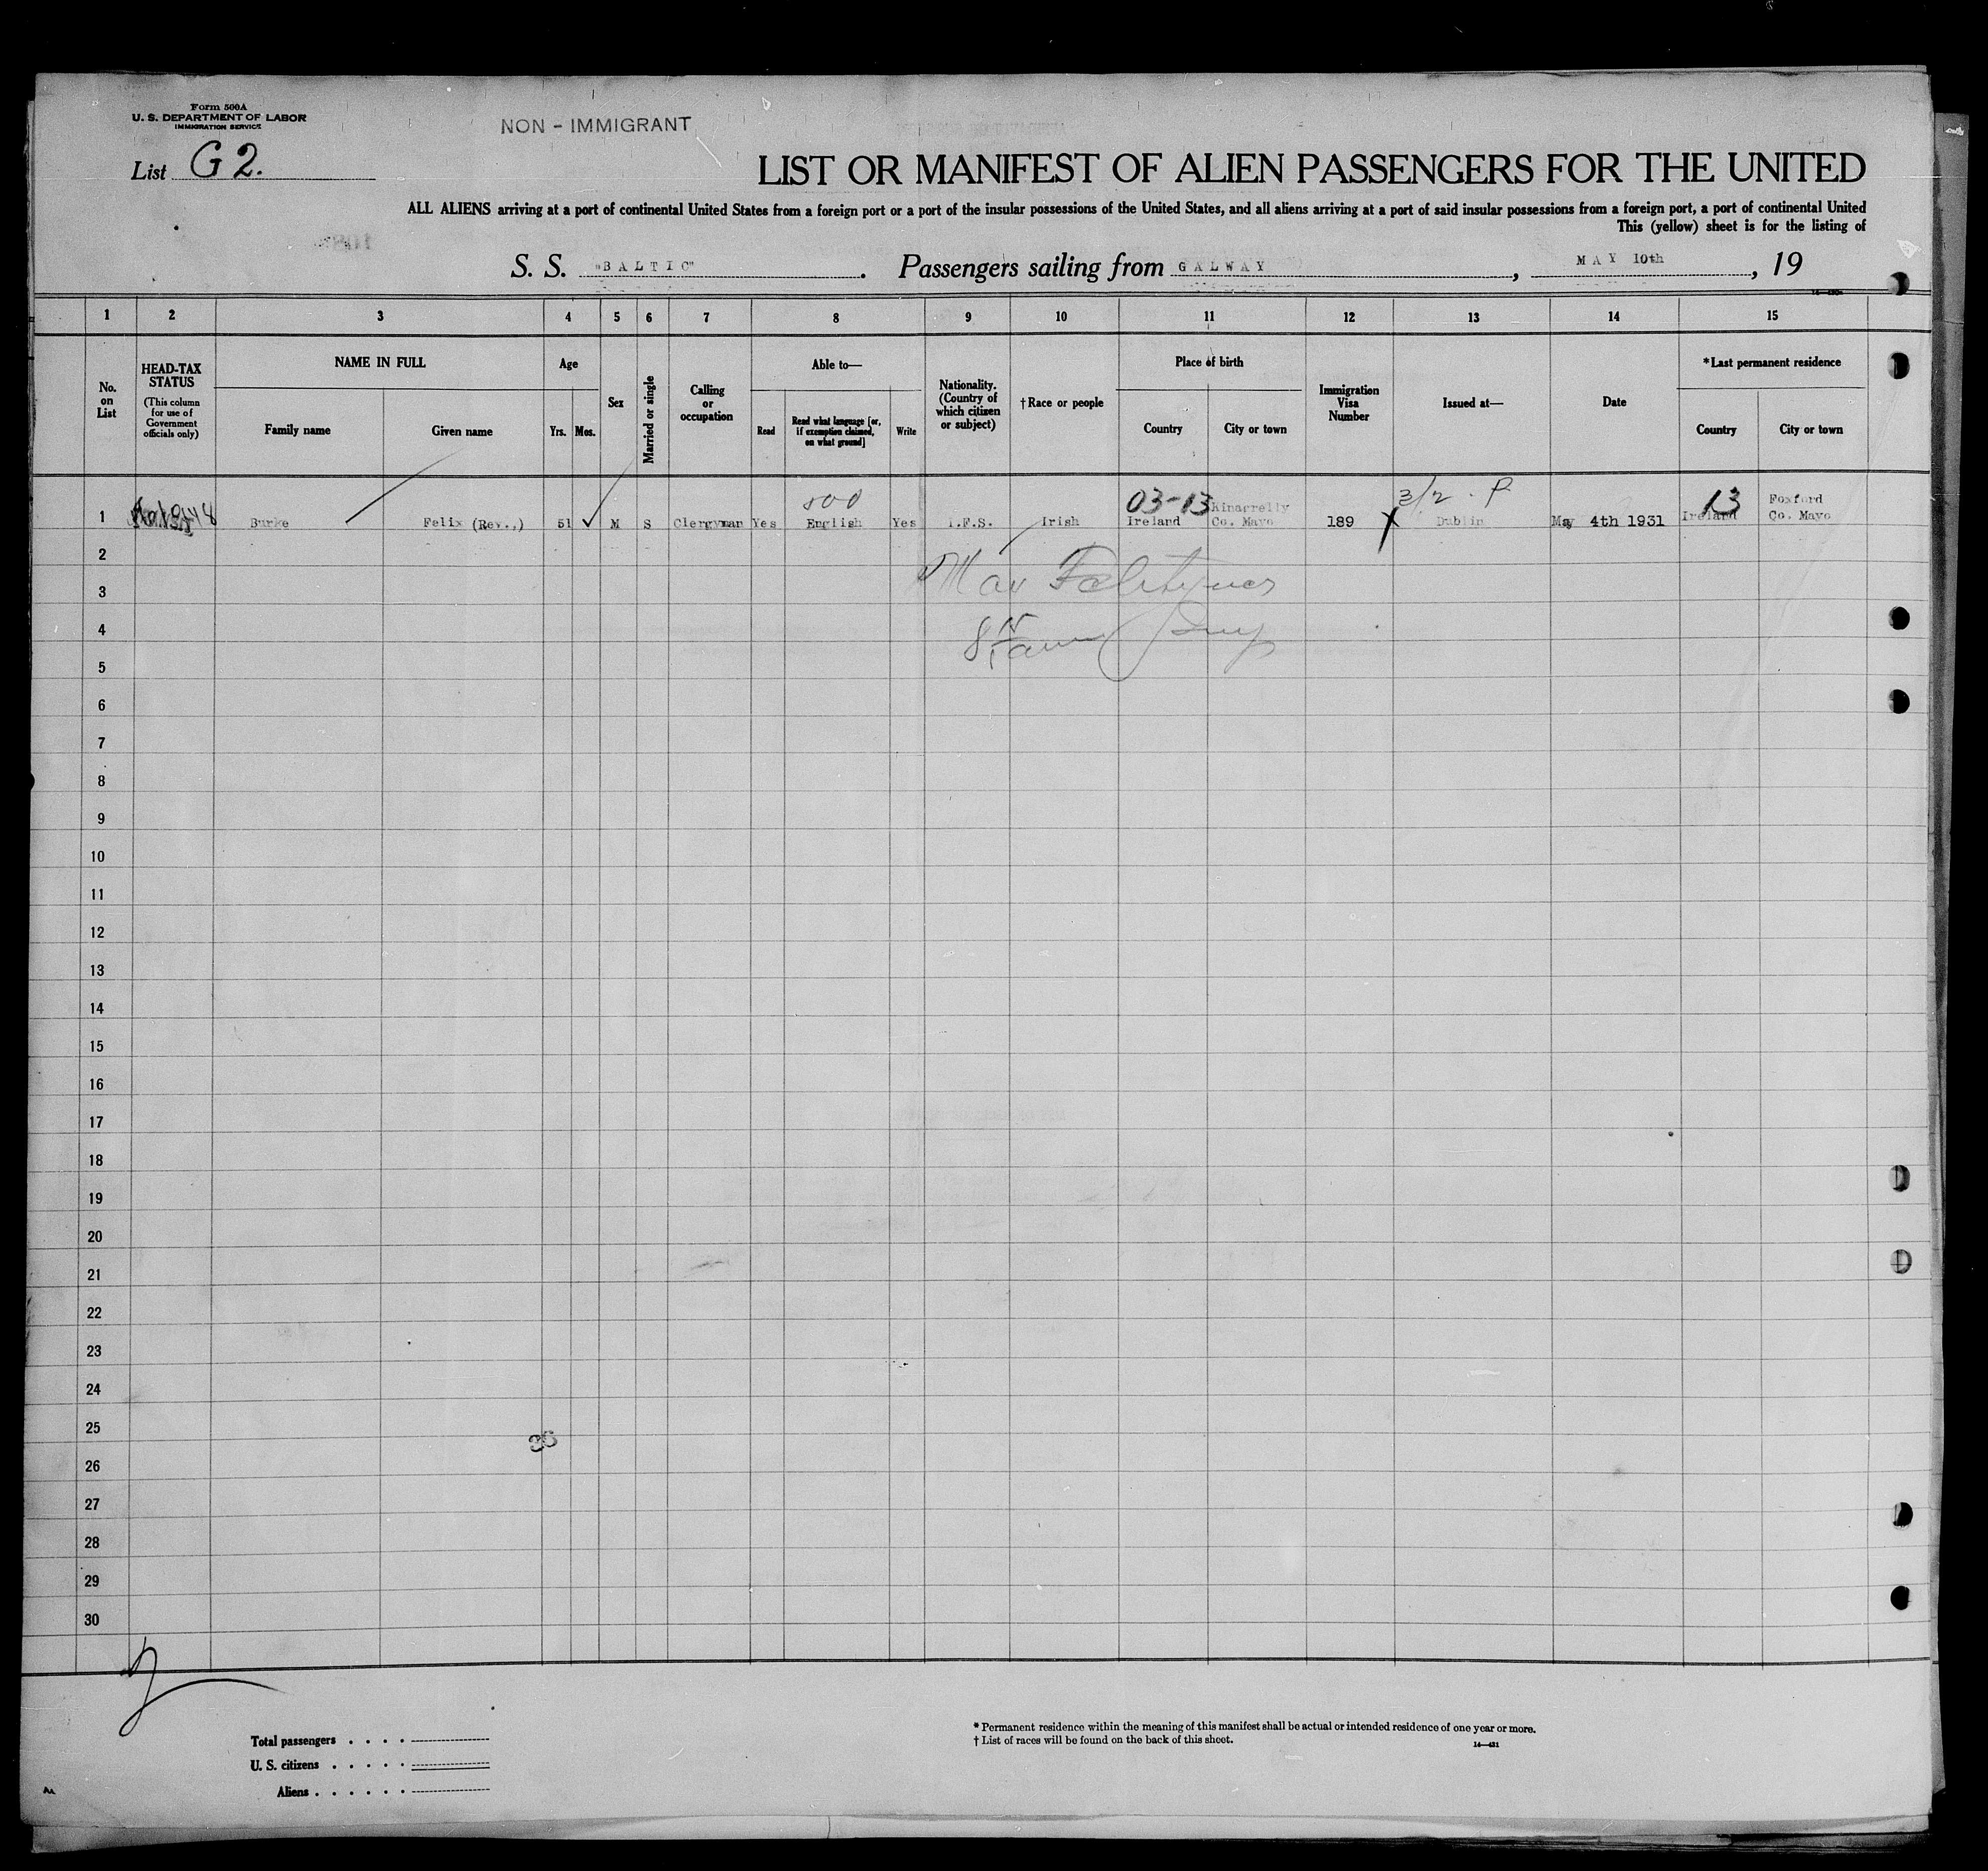 Form 500A
U. S. DEPARTMENT OF LABOR
IMMIGRATION SERVICE
NON - IMMIGRANT
List G 2.
LIST OR MANIFEST OF ALIEN PASSENGERS FOR THE UNITED
ALL ALIENS arriving at a port of continental United States from a foreign port or a port of the insular possessions of the United States, and all aliens arriving at a port of said insular possessions from a foreign port, a port of continental United
This (yellow) sheet is for the listing of
S. S. "BALTIC". Passengers sailing from GALWAY, MAY 10th, 19
1 2 3 4 5 6 7 8 9 10 11 12 13 14 15
No. on List
HEAD-TAX STATUS (This column for use of Government officials only)
NAME IN FULL
Family name Given name
Age
Yrs. Mos.
Sex
Married or single
Calling or occupation
Able to—
Read Read what language [or, if exemption claimed, on what ground] Write
Nationality. (Country of which citizen or subject)
†Race or people
Place of birth
Country City or town
Immigration Visa Number
Issued at—
Date
*Last permanent residence
Country City or town
500 03-13 Kinagrelly 3/2 . P. 13 Foxford
1 Burke Felix (Rev.,) 51 M S Clergyman Yes English Yes I.F.S. Irish Ireland Co. Mayo 189 Dublin May 4th 1931 Ireland Co. Mayo
2
3
4
5
6
7
8
9
10
11
12
13
14
15
16
17
18
19
20
21
22
23
24
25
36
26
27
28
29
30
Total passengers . . . .
U. S. citizens . . . . .
Aliens . . . . . .
* Permanent residence within the meaning of this manifest shall be actual or intended residence of one year or more.
† List of races will be found on the back of this sheet.
14—431